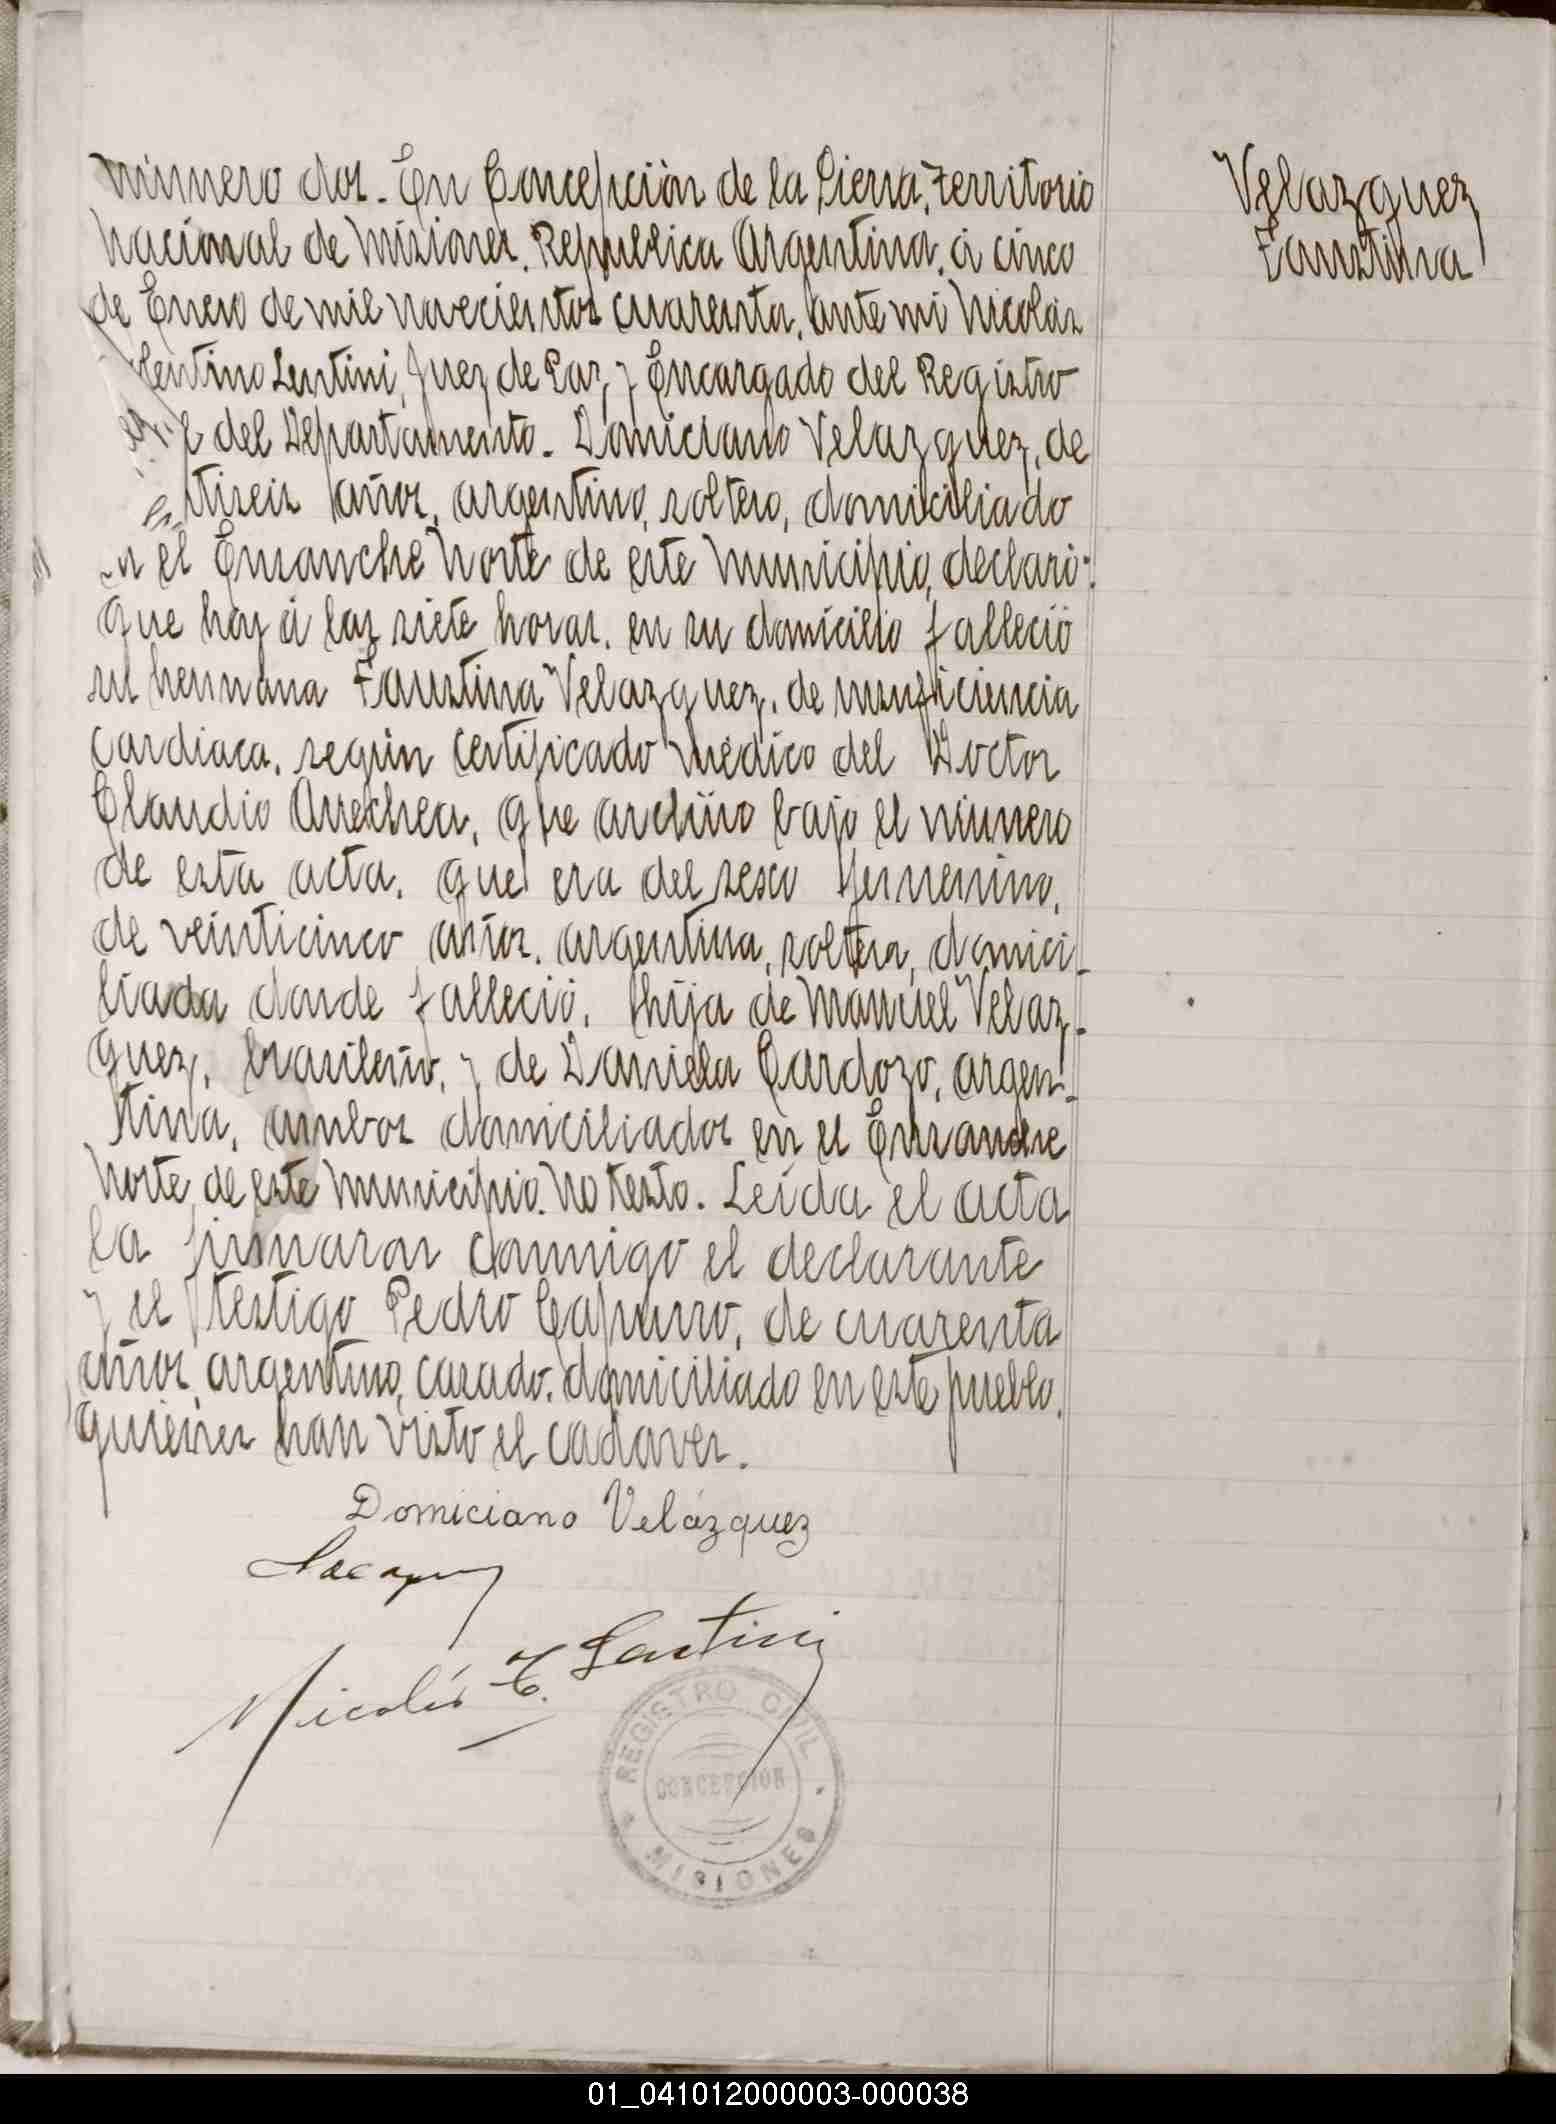 Número dos. En Concepción de la Sierra, Territorio
Nacional de Misiones. República Argentina, á cinco
de Enero de mil novecientos cuarenta, ante mi Nicolás
lentino Lentini, Juez de Paz, y Encargado del Registro
l del Departamento. Domiciano Velazquez, de
tiseis años, argentino, soltero, domiciliado
n el Ensanche Norte de este Municipio, declaró:
Que hoy á las siete horas, en su domicilio falleció
su hermana Faustina Velazquez, de insuficiencia
cardiaca, según certificado médico del Doctor
Claudio Arrechea, que archivo bajo el número
de esta acta, que era del sexo femenino,
de veinticinco años, argentina, soltera, domici-
liada donde falleció, hija de Manuel Velaz-
quez, brasileño, y de Daniela Cardozo, argen-
tina, ambos domiciliados en el Ensanche
Norte de este Municipio. No testó. Leida el acta
la firmaron conmigo el declarante
y el testigo Pedro de cuarenta
años, argentino, casado, domiciliado en este pueblo,
quienes han visto el cadaver.
Velazquez
Faustina
Domiciano Velázquez
Nicolás T. Lentini
REGISTRO CIVIL
CONCEPCIÓN
MISIONES
01_041012000003-000038